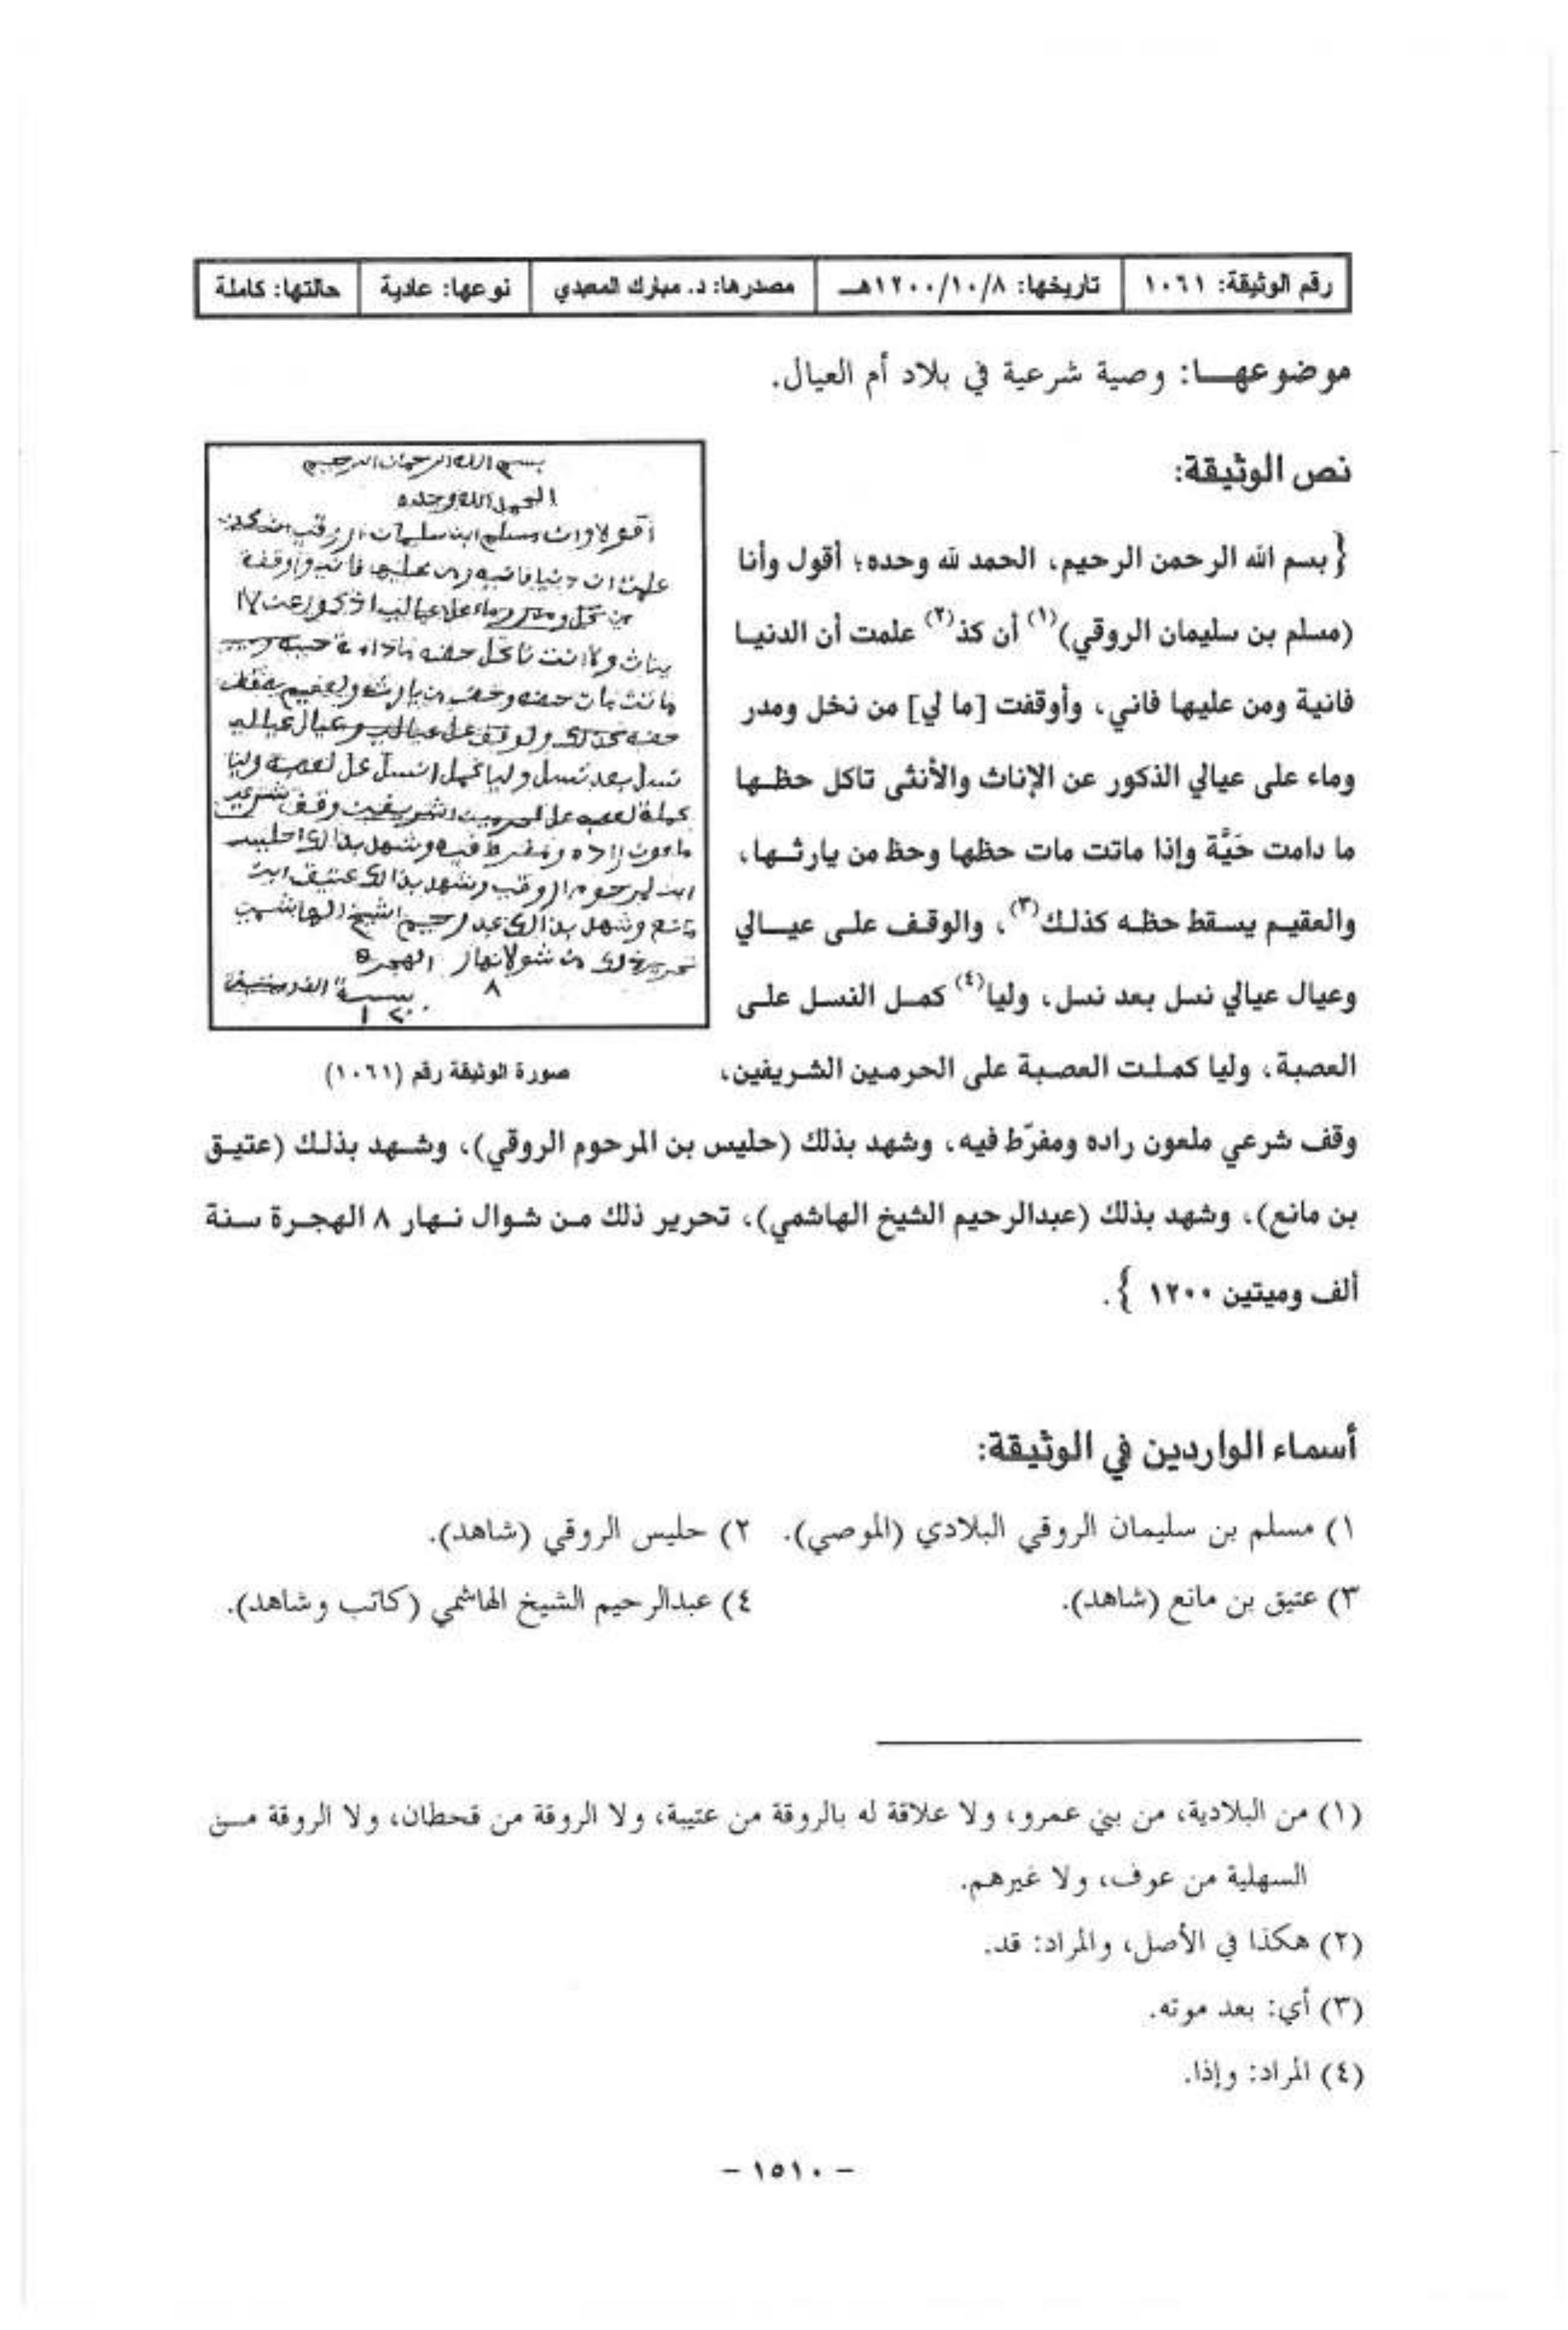 رقم الوثيقة: ١٠٦١ تاريخها: ١٢٠٠/١٠/٨هـ مصدرها: د. مبارك المعبدي نوعها: عادية حالتها: كاملة
موضوعهـا: وصية شرعية في بلاد أم العيال.
نص الوثيقة:
{بسم الله الرحمن الرحيم، الحمد لله وحده؛ أقول وأنا
(مسلم بن سليمان الروقي)(١) أن كذ(٢) علمت أن الدنيا
فانية ومن عليها فاني، وأوقفت [ما لي] من نخل ومدر
وماء على عيالي الذكور عن الإناث والأنثى تاكل حظها
ما دامت حَيَّة وإذا ماتت مات حظها وحظ من يارثها،
والعقيم يسقط حظه كذلك(٣)، والوقف على عيالي
وعيال عيالي نسل بعد نسل، وليا(٤) كمل النسل على
العصبة، وليا كملت العصبة على الحرمين الشريفين،
وقف شرعي ملعون راده ومفرّط فيه، وشهد بذلك (حليس بن المرحوم الروقي)، وشهد بذلك (عتيق
بن مانع)، وشهد بذلك (عبدالرحيم الشيخ الهاشمي)، تحرير ذلك من شوال نهار ٨ الهجرة سنة
ألف وميتين ١٢٠٠ }.
بسم الله الرحمان الرحيم
الحمد لله وحده
صورة الوثيقة رقم (١٠٦١)
أسماء الواردين في الوثيقة:
١) مسلم بن سليمان الروقي البلادي (الموصي). ٢) حليس الروقي (شاهد).
٣) عتيق بن مانع (شاهد). ٤) عبدالرحيم الشيخ الهاشمي (كاتب وشاهد).
(١) من البلادية، من بني عمرو، ولا علاقة له بالروقة من عتيبة، ولا الروقة من قحطان، ولا الروقة من
السهلية من عوف، ولا غيرهم.
(٢) هكذا في الأصل، والمراد: قد.
(٣) أي: بعد موته.
(٤) المراد: وإذا.
- ١٥١٠ -